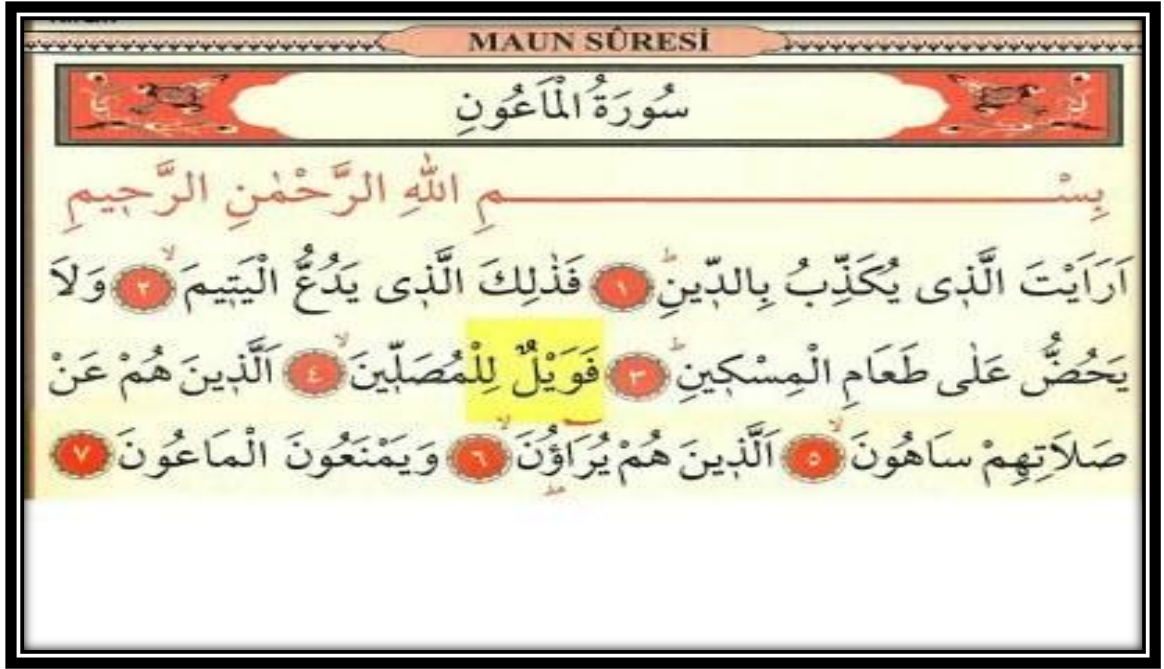 MAUN SÛRESİ
سُورَةُ الْمَاعُونِ
بِسْمِ اللّٰهِ الرَّحْمٰنِ الرَّحٖيمِ
اَرَاَيْتَ الَّذٖى يُكَذِّبُ بِالدّٖينِؕ ﴿١﴾ فَذٰلِكَ الَّذٖى يَدُعُّ الْيَتٖيمَۙ ﴿٢﴾ وَلَا
يَحُضُّ عَلٰى طَعَامِ الْمِسْكٖينِؕ ﴿٣﴾ فَوَيْلٌ لِلْمُصَلّٖينَۙ ﴿٤﴾ اَلَّذٖينَ هُمْ عَنْ
صَلَاتِهِمْ سَاهُونَۙ ﴿٥﴾ اَلَّذٖينَ هُمْ يُرَاؤُنَۙ ﴿٦﴾ وَيَمْنَعُونَ الْمَاعُونَ ﴿٧﴾